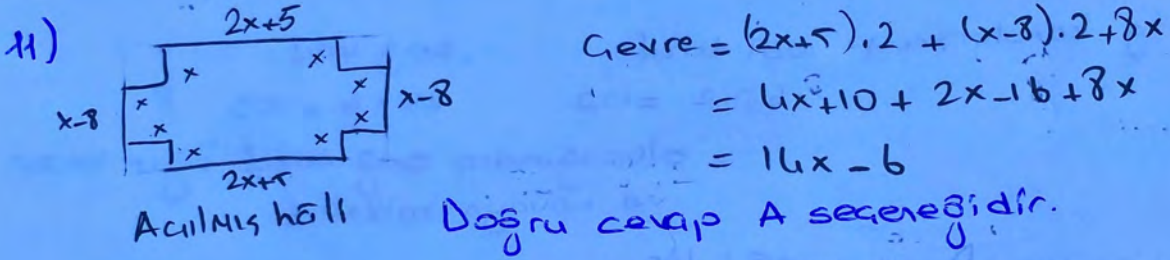 11)
2x+5
x x
x x
x-8 x-8
x x
x x
2x+5
Açılmış hâli
Çevre = (2x+5).2 + (x-8).2+8x
= 4x+10 + 2x-16+8x
= 14x-6
Doğru cevap A seçeneğidir.